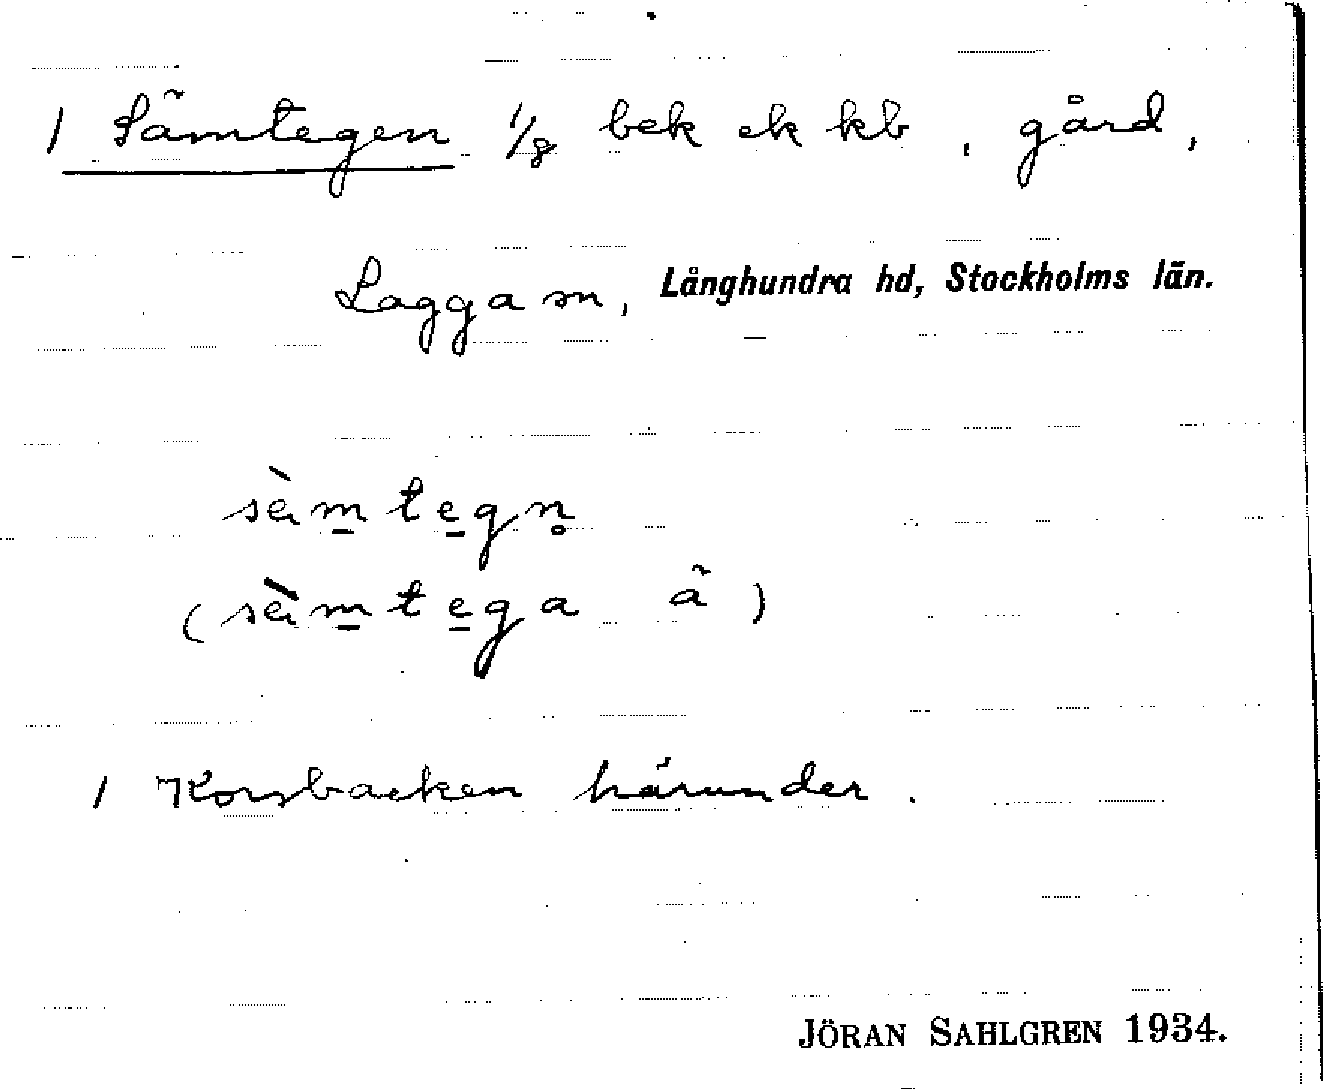 / Sämtegen 1/8 bek ek kb, gård,
Lagga sn, Långhundra hd, Stockholms län.
sèmtegn̥
(sèmtega ã)
/ Korsbacken härunder.
JÖRAN SAHLGREN 1934.